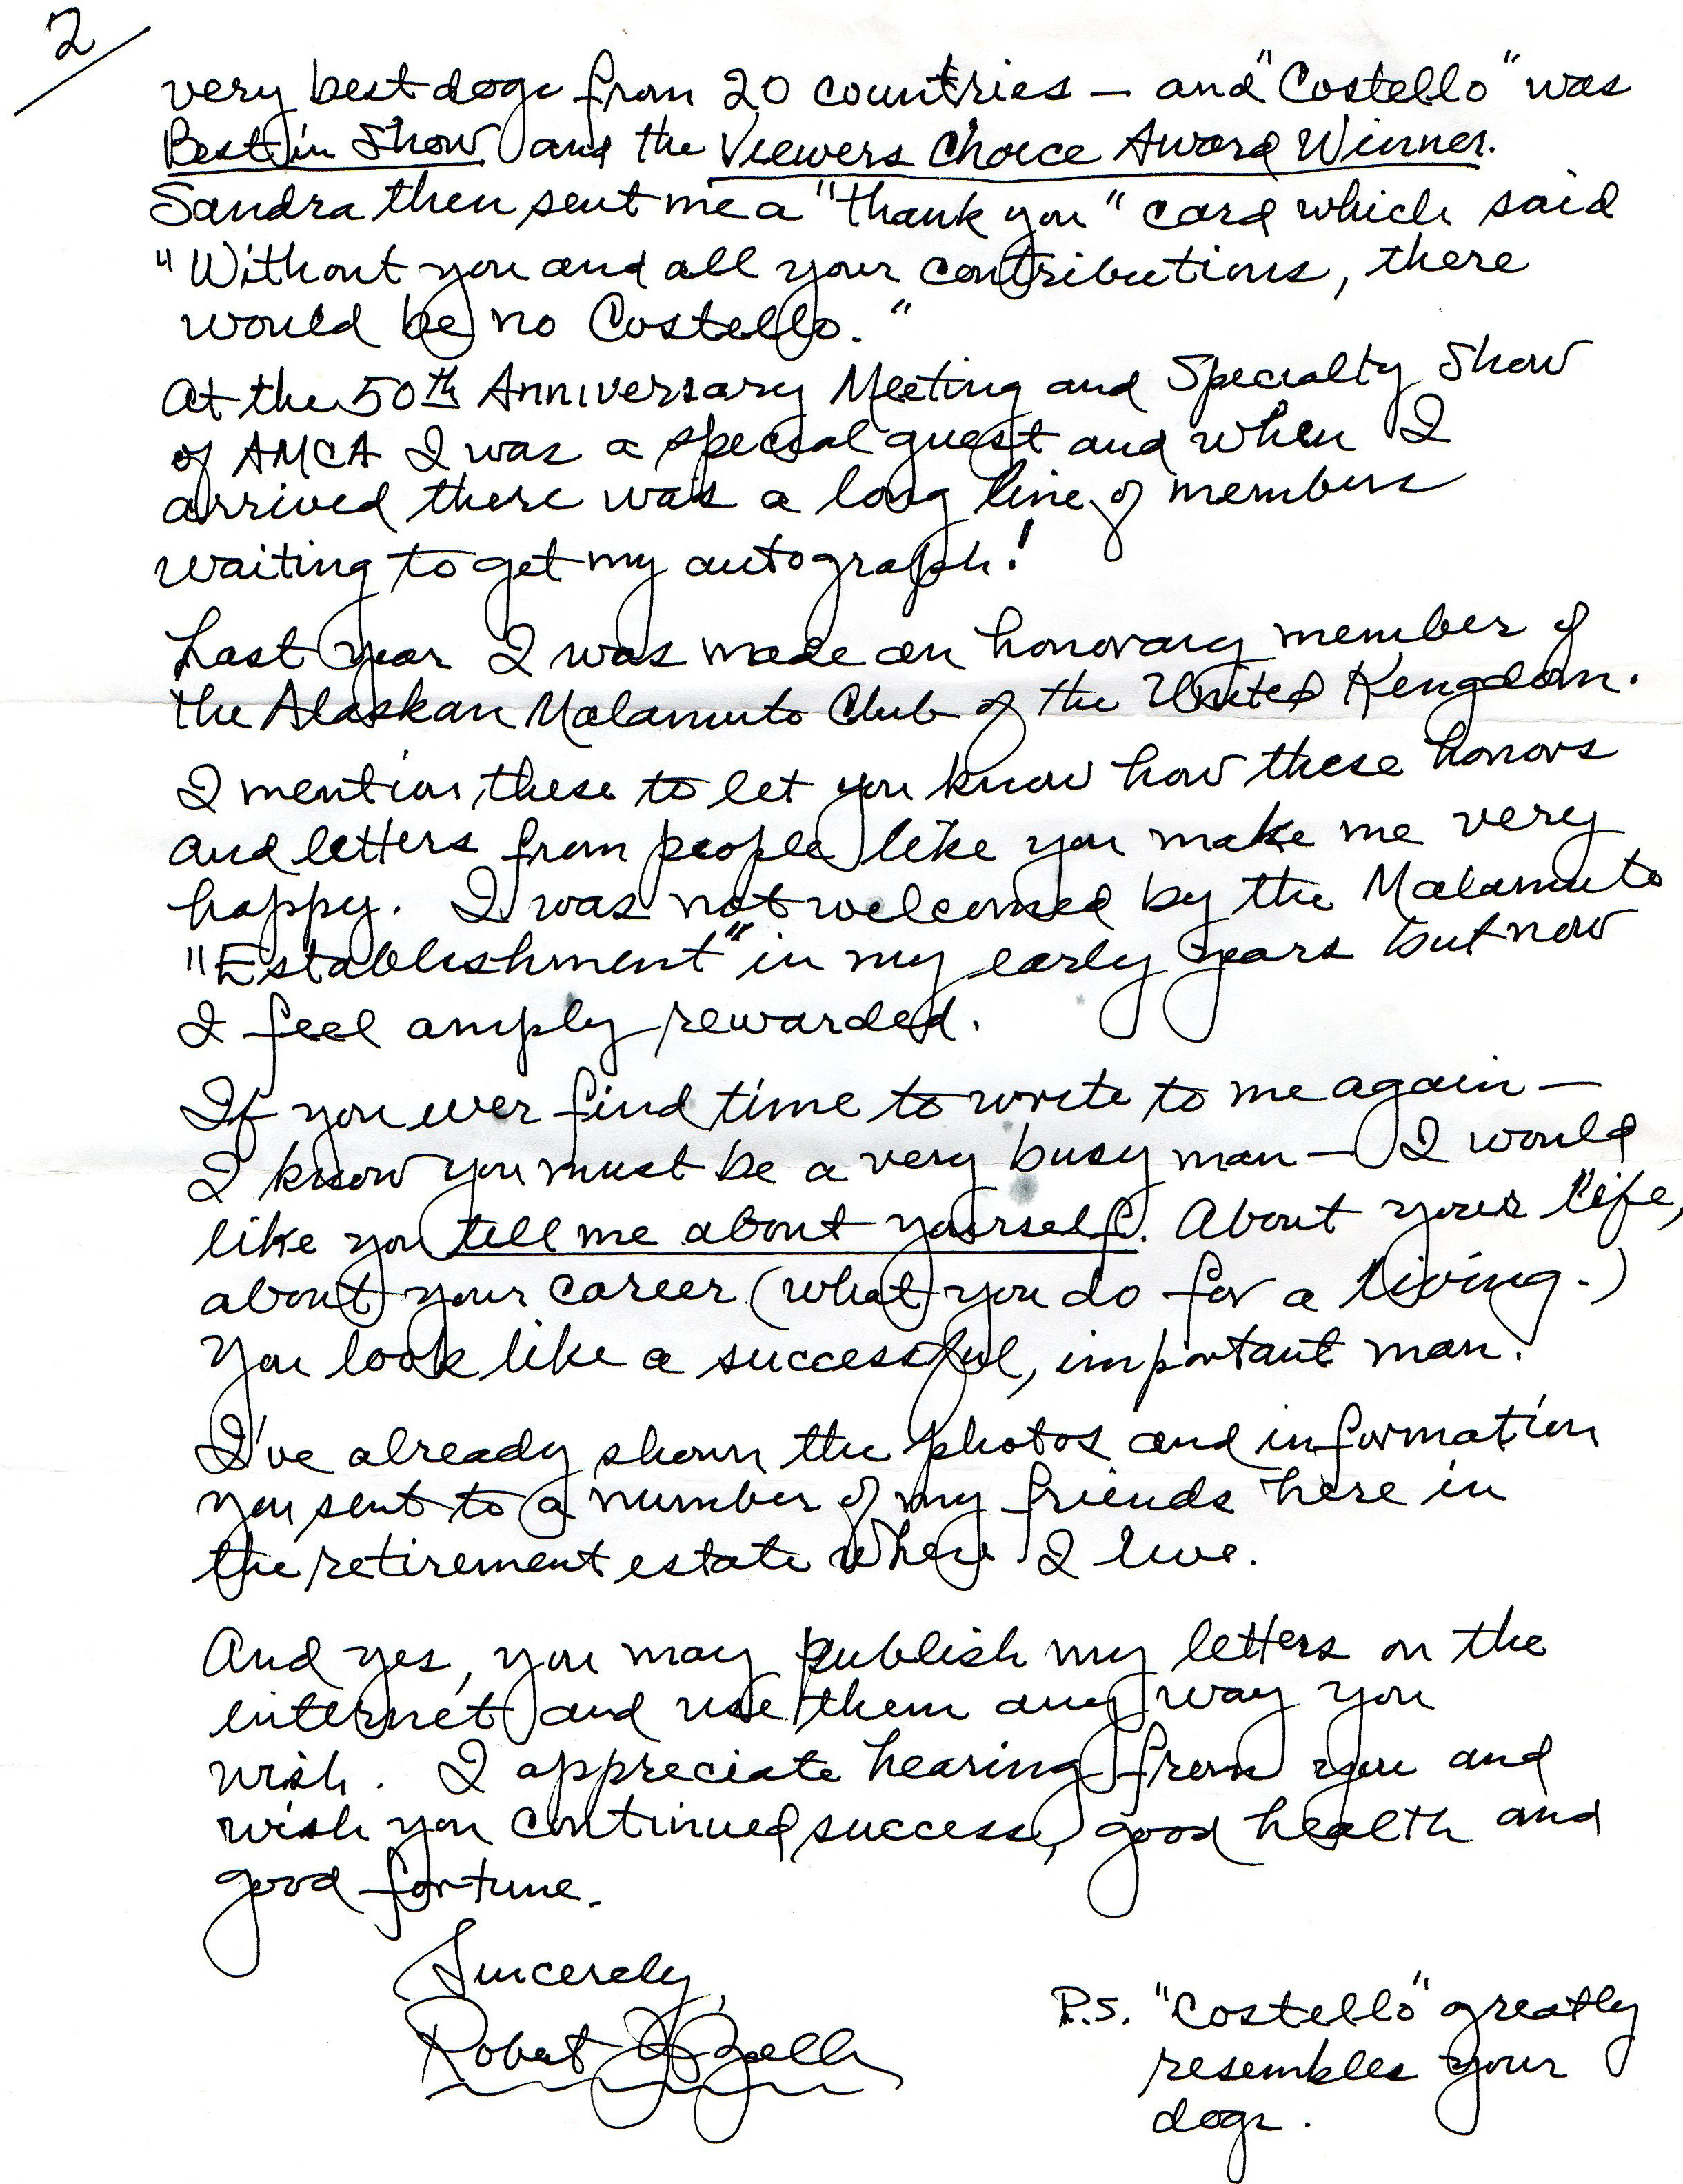 2
very best dogs from 20 countries — and "Costello" was
Best in Show and the Viewers Choice Award Winner.
Sandra then sent me a "thank you" card which said
"Without you and all your contributions, there
would be no Costello."
At the 50th Anniversary Meeting and Specialty Show
of AMCA I was a special guest and when I
arrived there was a long line of members
waiting to get my autograph!
Last year I was made an honorary member of
the Alaskan Malamute Club of the United Kingdom.
I mention these to let you know how these honors
and letters from people like you make me very
happy. I was not welcomed by the Malamute
"Establishment" in my early years but now
I feel amply rewarded.
If you ever find time to write to me again —
I know you must be a very busy man — I would
like you tell me about yourself. About your life,
about your career (what you do for a living.)
You look like a successful, important man.
I've already shown the photos and information
you sent to a number of my friends here in
the retirement estate where I live.
And yes, you may publish my letters on the
internet and use them any way you
wish. I appreciate hearing from you and
wish you continued success, good health and
good fortune.
Sincerely,
Robert J. Zoller
P.S. "Costello" greatly
resembles your
dogs.